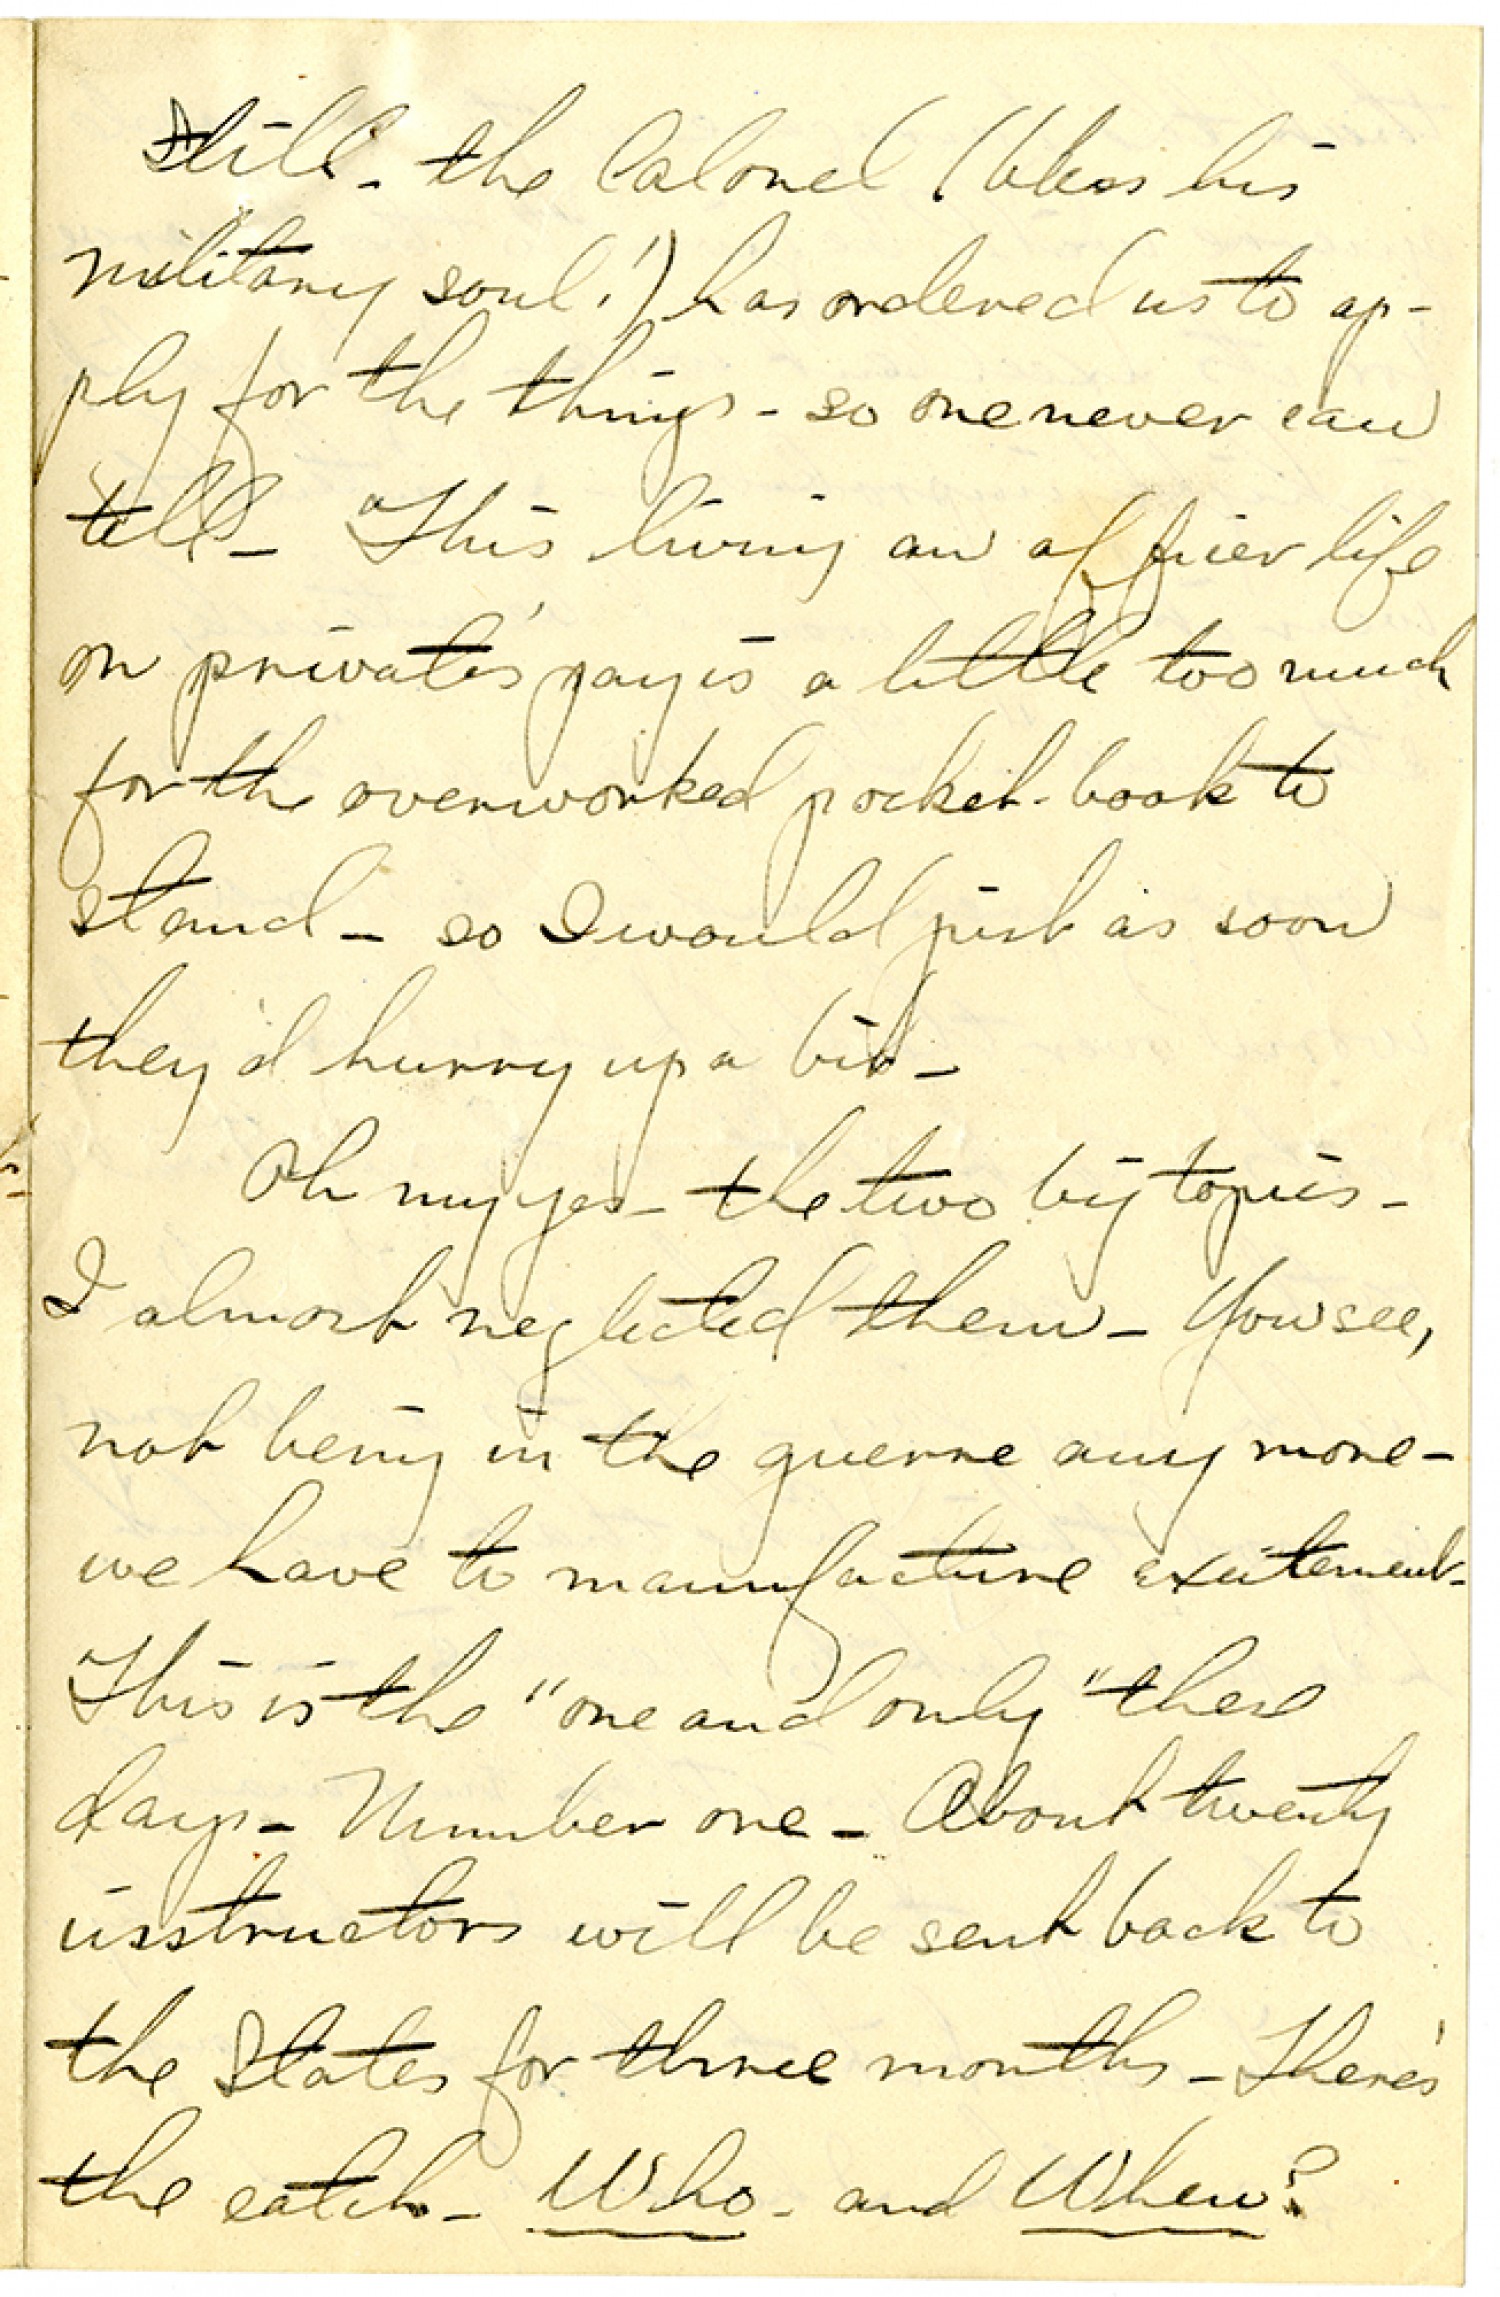 Still - the Colonel (bless his
military soul!) has ordered us to ap-
ply for the things - so one never can
tell - This living an officer life
on privates' pay is a little too much
for the overworked pocket-book to
stand - so I would just as soon
they'd hurry up a bit -
Oh my yes - the two big topics -
I almost neglected them - You see,
not being in the guerre any more -
we have to manufacture excitement -
This is the "one and only" these
days - Number one - About twenty
instructors will be sent back to
the States for three months - There's
the catch - Who - and When?